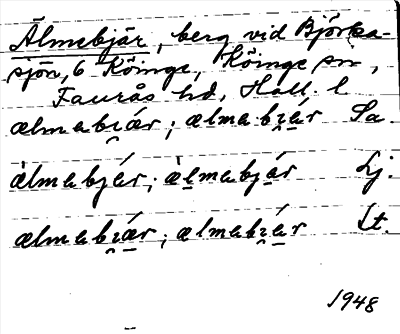 Älmebjär, berg vid Björka-
sjön, 6 Köinge, Köinge sn,
Faurås hd, Hall. l
ælmabɪ̯ár; ælmabɪ̯ár Sa.
àlmabjár; æ̀lmabjár Lj.
ælmabɪ̯ár; ælmabɪ̯ár Lt.
1948